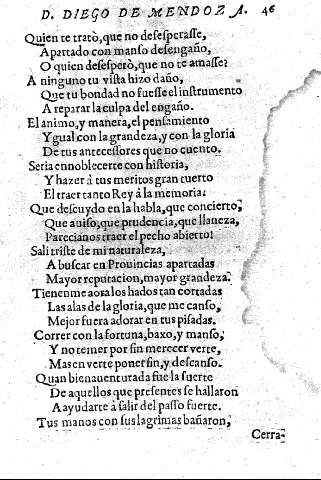 D. DIEGO DE MENDOZA. 46
Quien te tratò, que no desesperasse,
Apartado con manso desengaño,
O quien desesperò, que no te amasse?
A ninguno tu vista hizo daño,
Que tu bondad no fuesse el instrumento
A reparar la culpa del engaño.
El animo, y manera, el pensamiento
Ygual con la grandeza, y con la gloria
De tus antecessores que no cuento.
Seria ennoblecerte con historia,
Y hazer à tus meritos gran tuerto
El traer tanto Rey à la memoria:
Que descuydo en la habla, que concierto,
Que auiso, que prudencia, que llaneza,
Pareciànos traer el pecho abierto!
Sali triste de mi naturaleza,
A buscar en Prouincias apartadas
Mayor reputacion, mayor grandeza.
Tienenme aora los hados tan cortadas
Las alas de la gloria, que me canso,
Mejor fuera adorar en tus pisadas.
Correr con la fortuna, baxo, y manso,
Y no temer por fin merecer verte,
Mas en verte poner fin, y descanso.
Quan bienauenturada fue la suerte
De aquellos que presentes se hallaron
A ayudarte à salir del passo fuerte.
Tus manos con sus lagrimas bañaron,
Cerra-